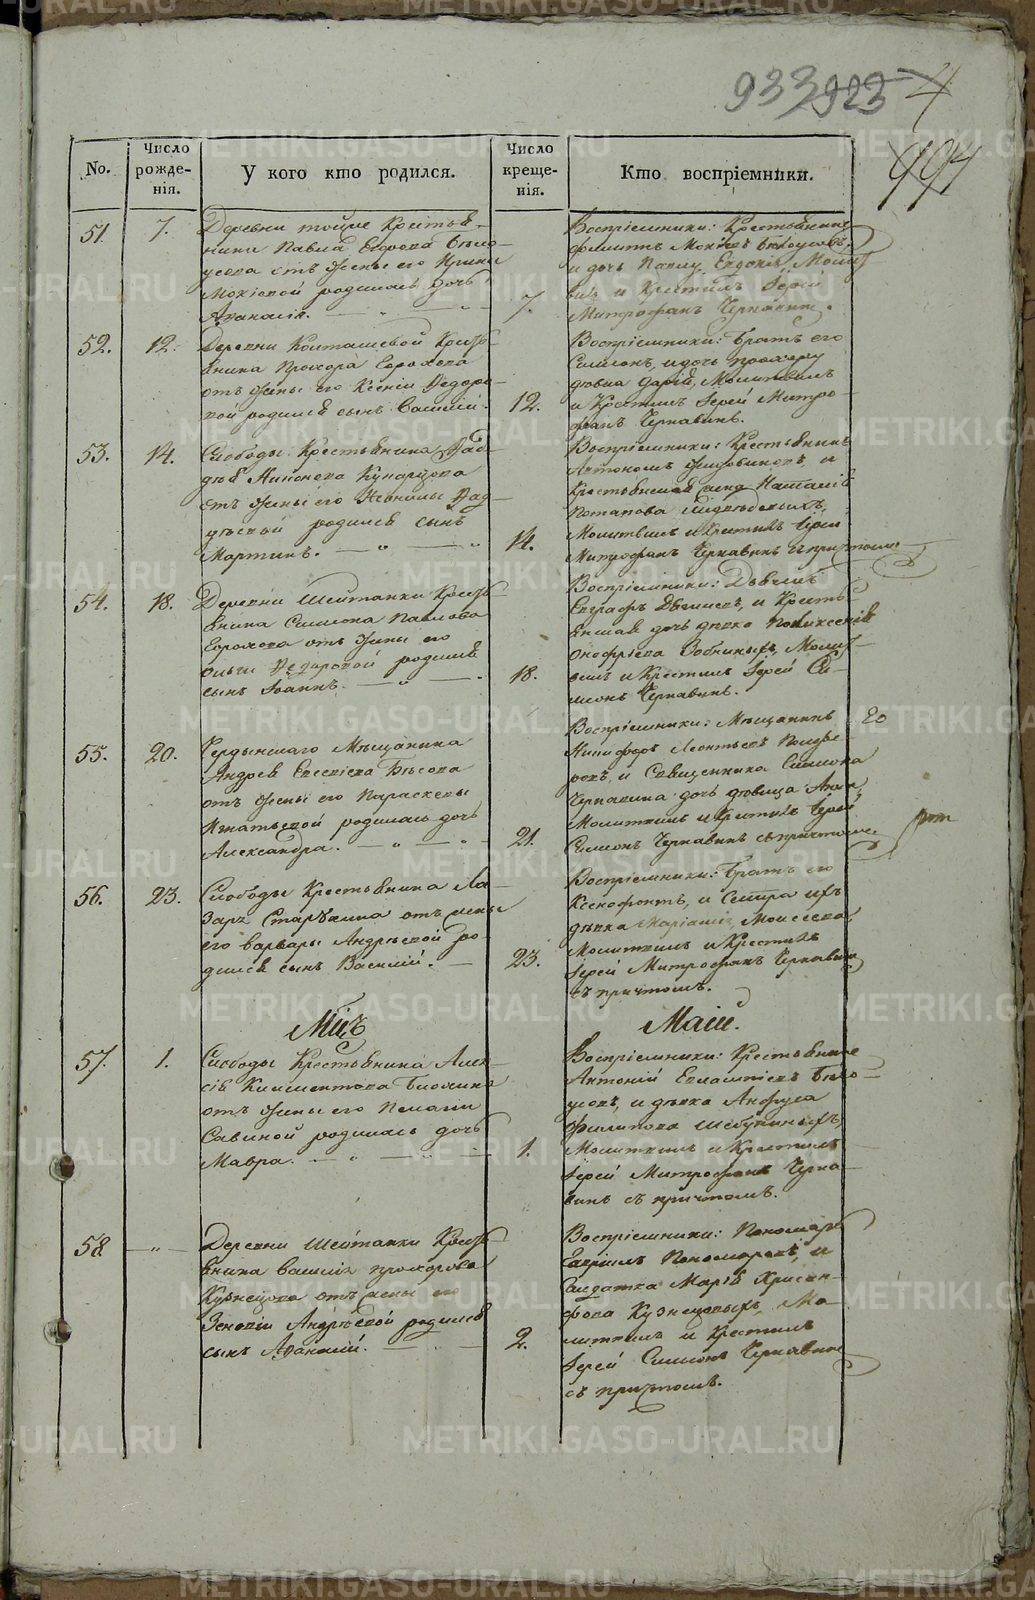 933 923 4
494
No.
Число рожденія.
У кого кто родился.
Число крещенія.
Кто воспріемники.
51. 7.
Деревни тойже Крестья-
нина Павла Егорова Бѣло-
усова отъ жены его Ирины
Мокіевой родилась дочь
Афанасія.
7.
Воспріемники: Крестьянинъ
Филиппъ Мокіевъ Бѣлоусовъ,
и дочь Павлу Евдокія, Молит
вилъ и Крестилъ Іерей
Митрофанъ Чернавинъ.
52. 12.
Деревни Колташевой Кресть
янина Прохора Ворохова
отъ жены его Ксеніи Ѳедоро-
вой родился сынъ Василій.
12.
Воспріемники: Братъ его
Симеонъ, и дочь Прохору
дѣвка Дарія, Молитвилъ
и Крестилъ Іерей Митро-
фанъ Чернавинъ.
53. 14.
Слободы Крестьянина Фад-
дѣя Кунарцова
отъ жены его Ѳад-
дѣевой родился сынъ
Мартинъ.
14.
Воспріемники: Крестьянинъ
Автономъ и
Крестьянская Наталія
Потапова
Молитвилъ и Крестилъ Іерей
Митрофанъ Чернавинъ съ причтомъ
54. 18.
Деревни Шейтанки Кресть
янина Симеона Павлова
отъ жены его
Ольги Ѳедоровой родился
сынъ Іоаннъ.
18.
Воспріемники:
Евграфъ и Кресть-
янская дочь дѣвка Поликсенія
Онофріева Молит-
вилъ и Крестилъ Іерей Си-
меонъ Чернавинъ.
55. 20.
Чердынскаго Мѣщанина
Андрея Евсевіева Бѣсова
отъ жены его Параскевы
Игнатьевой родилась дочь
Александра.
21.
Воспріемники: Мѣщанинъ
Никифоръ Леонтьевъ
и Священника Симеона
Чернавина дочь дѣвица
Молитвилъ и Крестилъ Іерей
Симеонъ Чернавинъ съ причтомъ.
56. 23.
Слободы Крестьянина Ла-
заря Старѣвина отъ жены
его Варвары Андрѣевой ро-
дился сынъ Василій.
23.
Воспріемники: Братъ его
Ксенофонтъ, и Сестра ихъ
дѣвка Маріамія Моисеева,
Молитвилъ и Крестилъ
Іерей Митрофанъ Чернавинъ
съ причтомъ.
Мцъ Маій.
57. 1.
Слободы Крестьянина Алек-
сія Климентова
отъ жены его Пелагіи
Савиной родилась дочь
Мавра.
1.
Воспріемники: Крестьянинъ
Антоній Евлампіевъ Бѣло-
усовъ, и дѣвка Анфуса
Филипова
Молитвилъ и Крестилъ
Іерей Митрофанъ Черна-
винъ съ причтомъ.
58. — „ —
Деревни Шейтанки Кресть
янина Василія Прохорова
Кузнецова отъ жены его
Зеновіи Андрѣевой родился
сынъ Афанасій.
2.
Воспріемники: Пономарь
Гавріилъ Пономаревъ, и
Солдатка Марія Хрисан-
фова Кузнецовыхъ, Мо-
литвилъ и Крестилъ
Іерей Симеонъ Чернавинъ
съ причтомъ.
METRIKI.GASO-URAL.RU